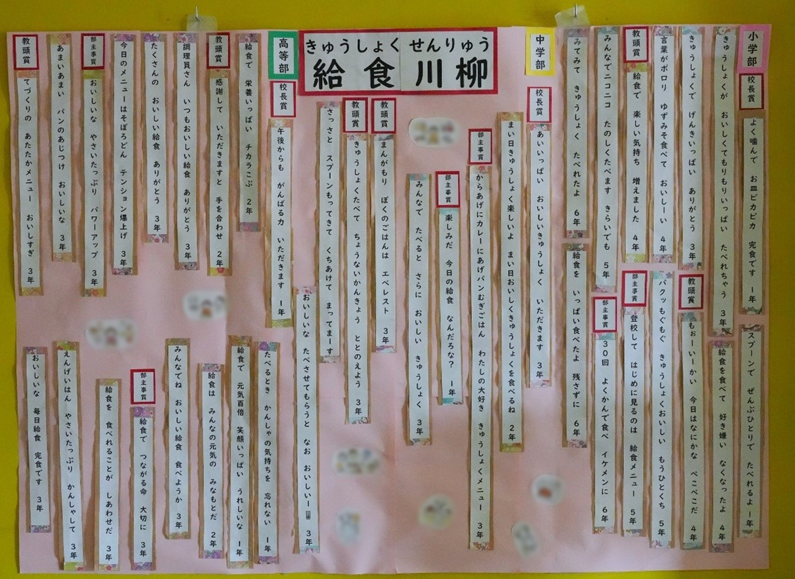 きゅうしょく せんりゅう
給食川柳
小学部
校長賞
よく噛んで お皿ピカピカ 完食です 1年
スプーンで ぜんぶひとりで たべれるよ 1年
きゅうしょくが おいしくてもりもりいっぱい たべれちゃう 3年
給食を食べて 好き嫌い なくなったよ 4年
きゅうしょくで げんきいっぱい ありがとう 3年
教頭賞
もぉーいーかい 今日はなにかな ぺこぺこだ 4年
言葉がポロリ ゆずみそ食べて おいしーい 4年
パクッもぐもぐ きゅうしょくおいしい もうひとくち 5年
教頭賞
給食で 楽しい気持ち 増えました 4年
部主事賞
登校して はじめに見るのは 給食メニュー 5年
みんなでニコニコ たのしくたべます きらいでも 5年
部主事賞
30回 よくかんで食べ イケメンに 6年
みてみて きゅうしょく たべれたよ 6年
給食を いっぱい食べたよ 残さずに 6年
中学部
校長賞
あいいっぱい おいしいきゅうしょく いただきます 3年
まい日きゅうしょく楽しいよ まい日おいしくきゅうしょくを食べるね 2年
部主事賞
からあげにカレーにあげパンむぎごはん わたしの大好き きゅうしょくメニュー 3年
部主事賞
楽しみだ 今日の給食 なんだろな? 1年
みんなで たべると さらに おいしい きゅうしょく 3年
教頭賞
まんがもり ぼくのごはんは エベレスト 3年
教頭賞
きゅうしょくたべて ちょうないかんきょう ととのえよう 3年
さっさと スプーンもってきて くちあけて まってまーす
おいしいな たべさせてもらうと なお おいしいー 3年
高等部
校長賞
午後からも がんばる力 いただきます 1年
たべるとき かんしゃの気持ちを 忘れない 1年
給食で 栄養いっぱい チカラこぶ 2年
給食で 元気百倍 笑顔いっぱい うれしいな 1年
教頭賞
感謝して いただきますと 手を合わせ 2年
給食は みんなの元気の みなもとだ 2年
調理員さん いつもおいしい給食 ありがとう 3年
みんなでね おいしい給食 食べようか 3年
たくさんの おいしい給食 ありがとう 3年
部主事賞
給食で つながる命 大切に 3年
今日のメニューはそぼろどん テンション爆上げ 3年
給食を 食べれることが しあわせだ 3年
部主事賞
おいしいな やさいたっぷり パワーアップ 3年
えんげいはん やさいたっぷり かんしゃして 3年
あまいあまい パンのあじつけ おいしいな 3年
おいしいな 毎日給食 完食です 3年
教頭賞
てづくりの あたたかメニュー おいしすぎ 3年